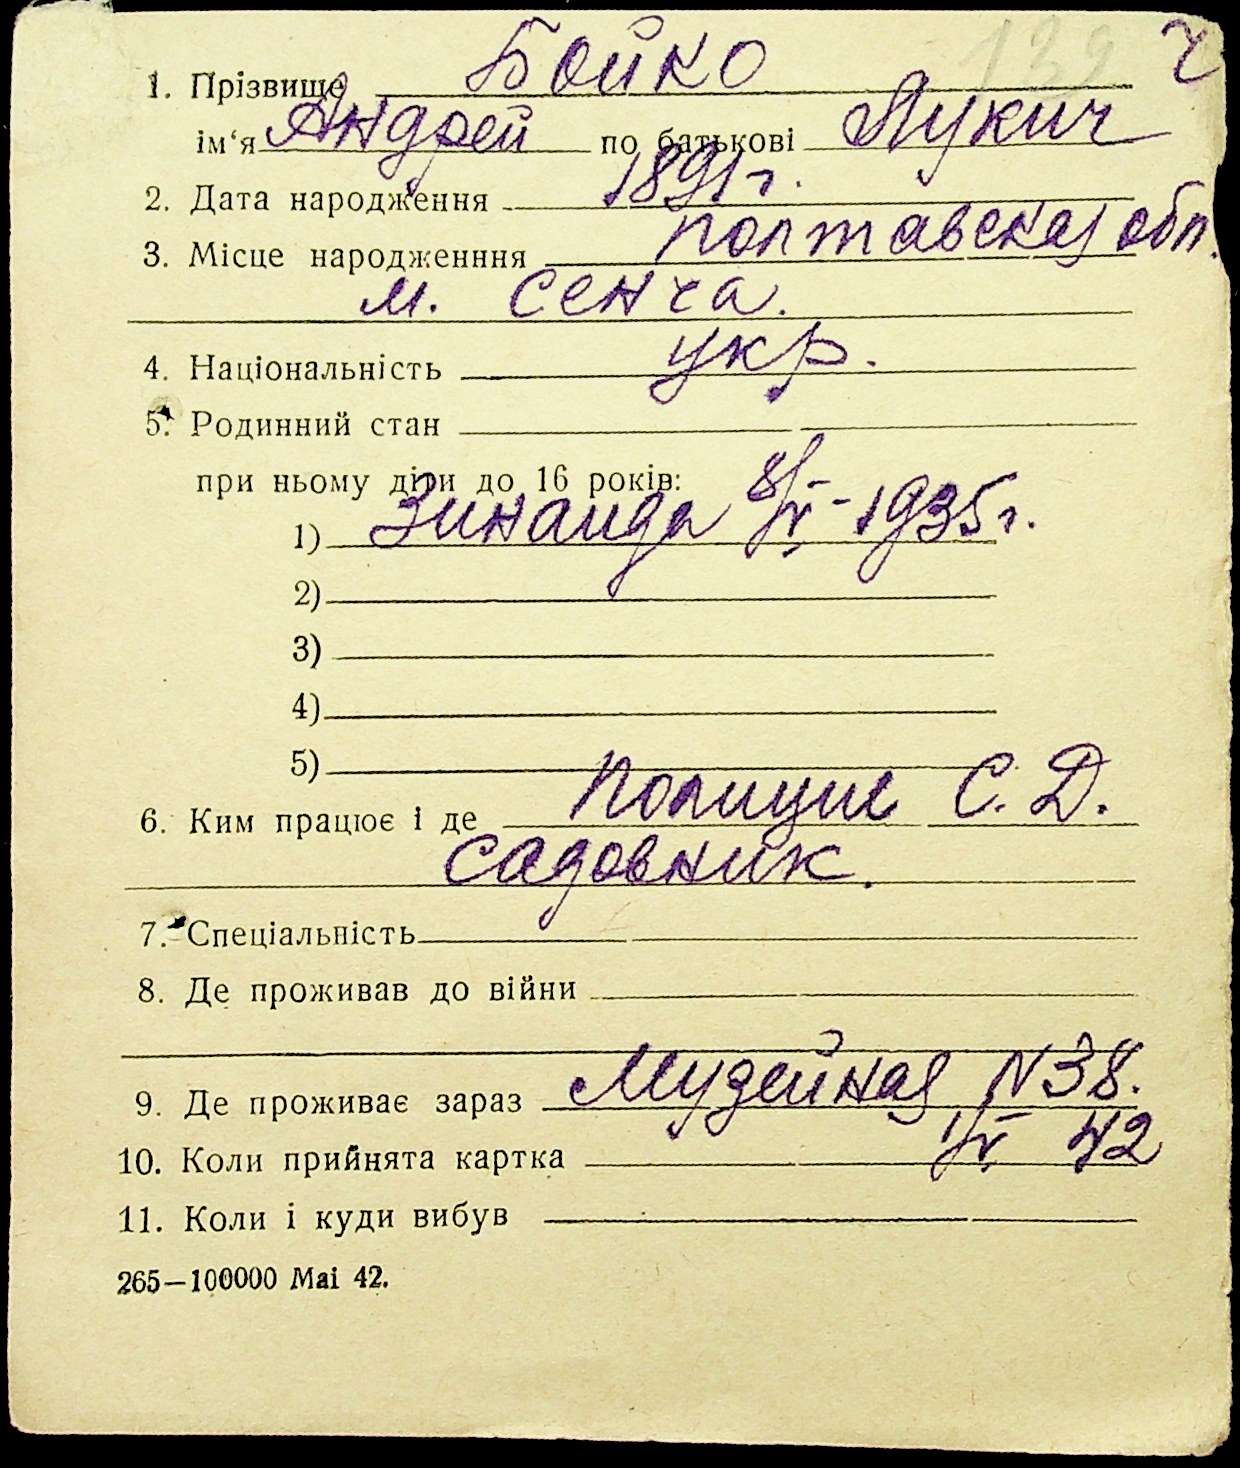 139 ч
1. Прізвище Бойко
ім‘я Андрей по батькові Лукич
2. Дата народження 1891 г.
3. Місце народженння Полтавская обл.
м. Сенча.
4. Національність укр.
5. Родинний стан
при ньому діти до 16 років:
1) Зинаида 8/IV - 1935 г.
2)
3)
4)
5)
6. Ким працює і де Полиция С. Д.
садовник.
7. Спеціальність
8. Де проживав до війни
9. Де проживає зараз Музейная N 38.
10. Коли прийнята картка 42
11. Коли і куди вибув
265—100000 Mai 42.